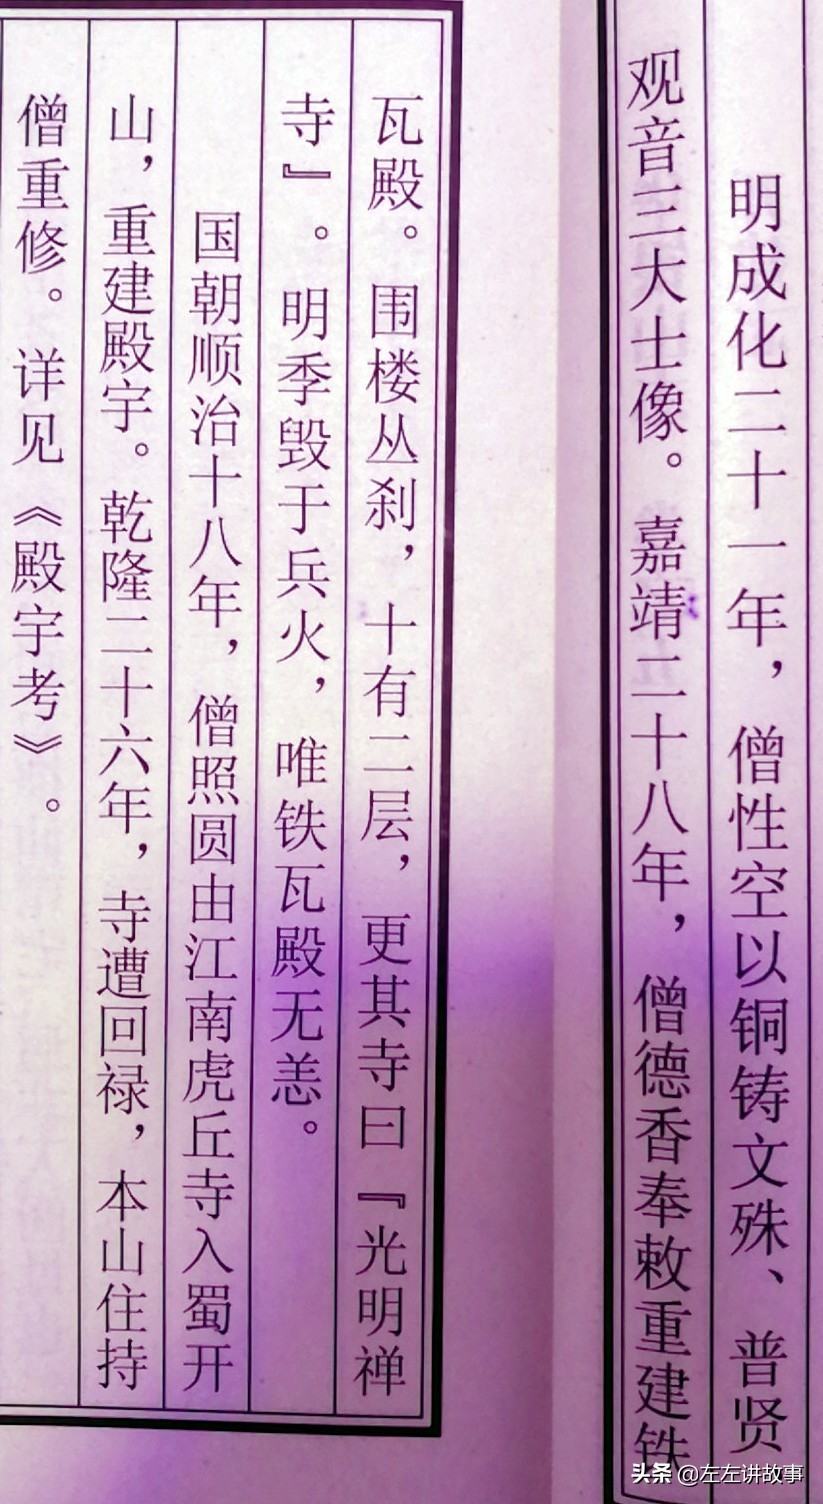 明成化二十一年，僧性空以铜铸文殊、普贤
观音三大士像。嘉靖二十八年，僧德香奉敕重建铁
瓦殿。围楼丛刹，十有二层，更其寺曰『光明禅
寺』。明季毁于兵火，唯铁瓦殿无恙。
国朝顺治十八年，僧照圆由江南虎丘寺入蜀开
山，重建殿宇。乾隆二十六年，寺遭回禄，本山住持
僧重修。详见《殿宇考》。
头条 @左左讲故事